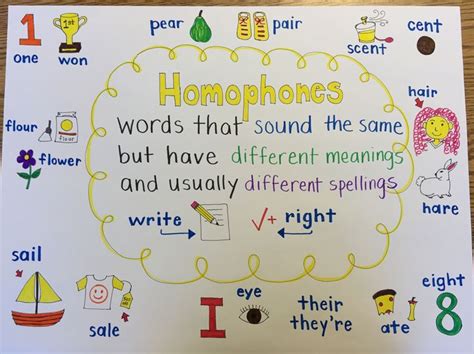 1 one won
pear pair
scent
cent
Homophones
words that sound the same
but have different meanings
and usually different spellings
write
√+ right
hair
hare
flour
flower
sail
sale
I eye
their
they're
ate
eight
8